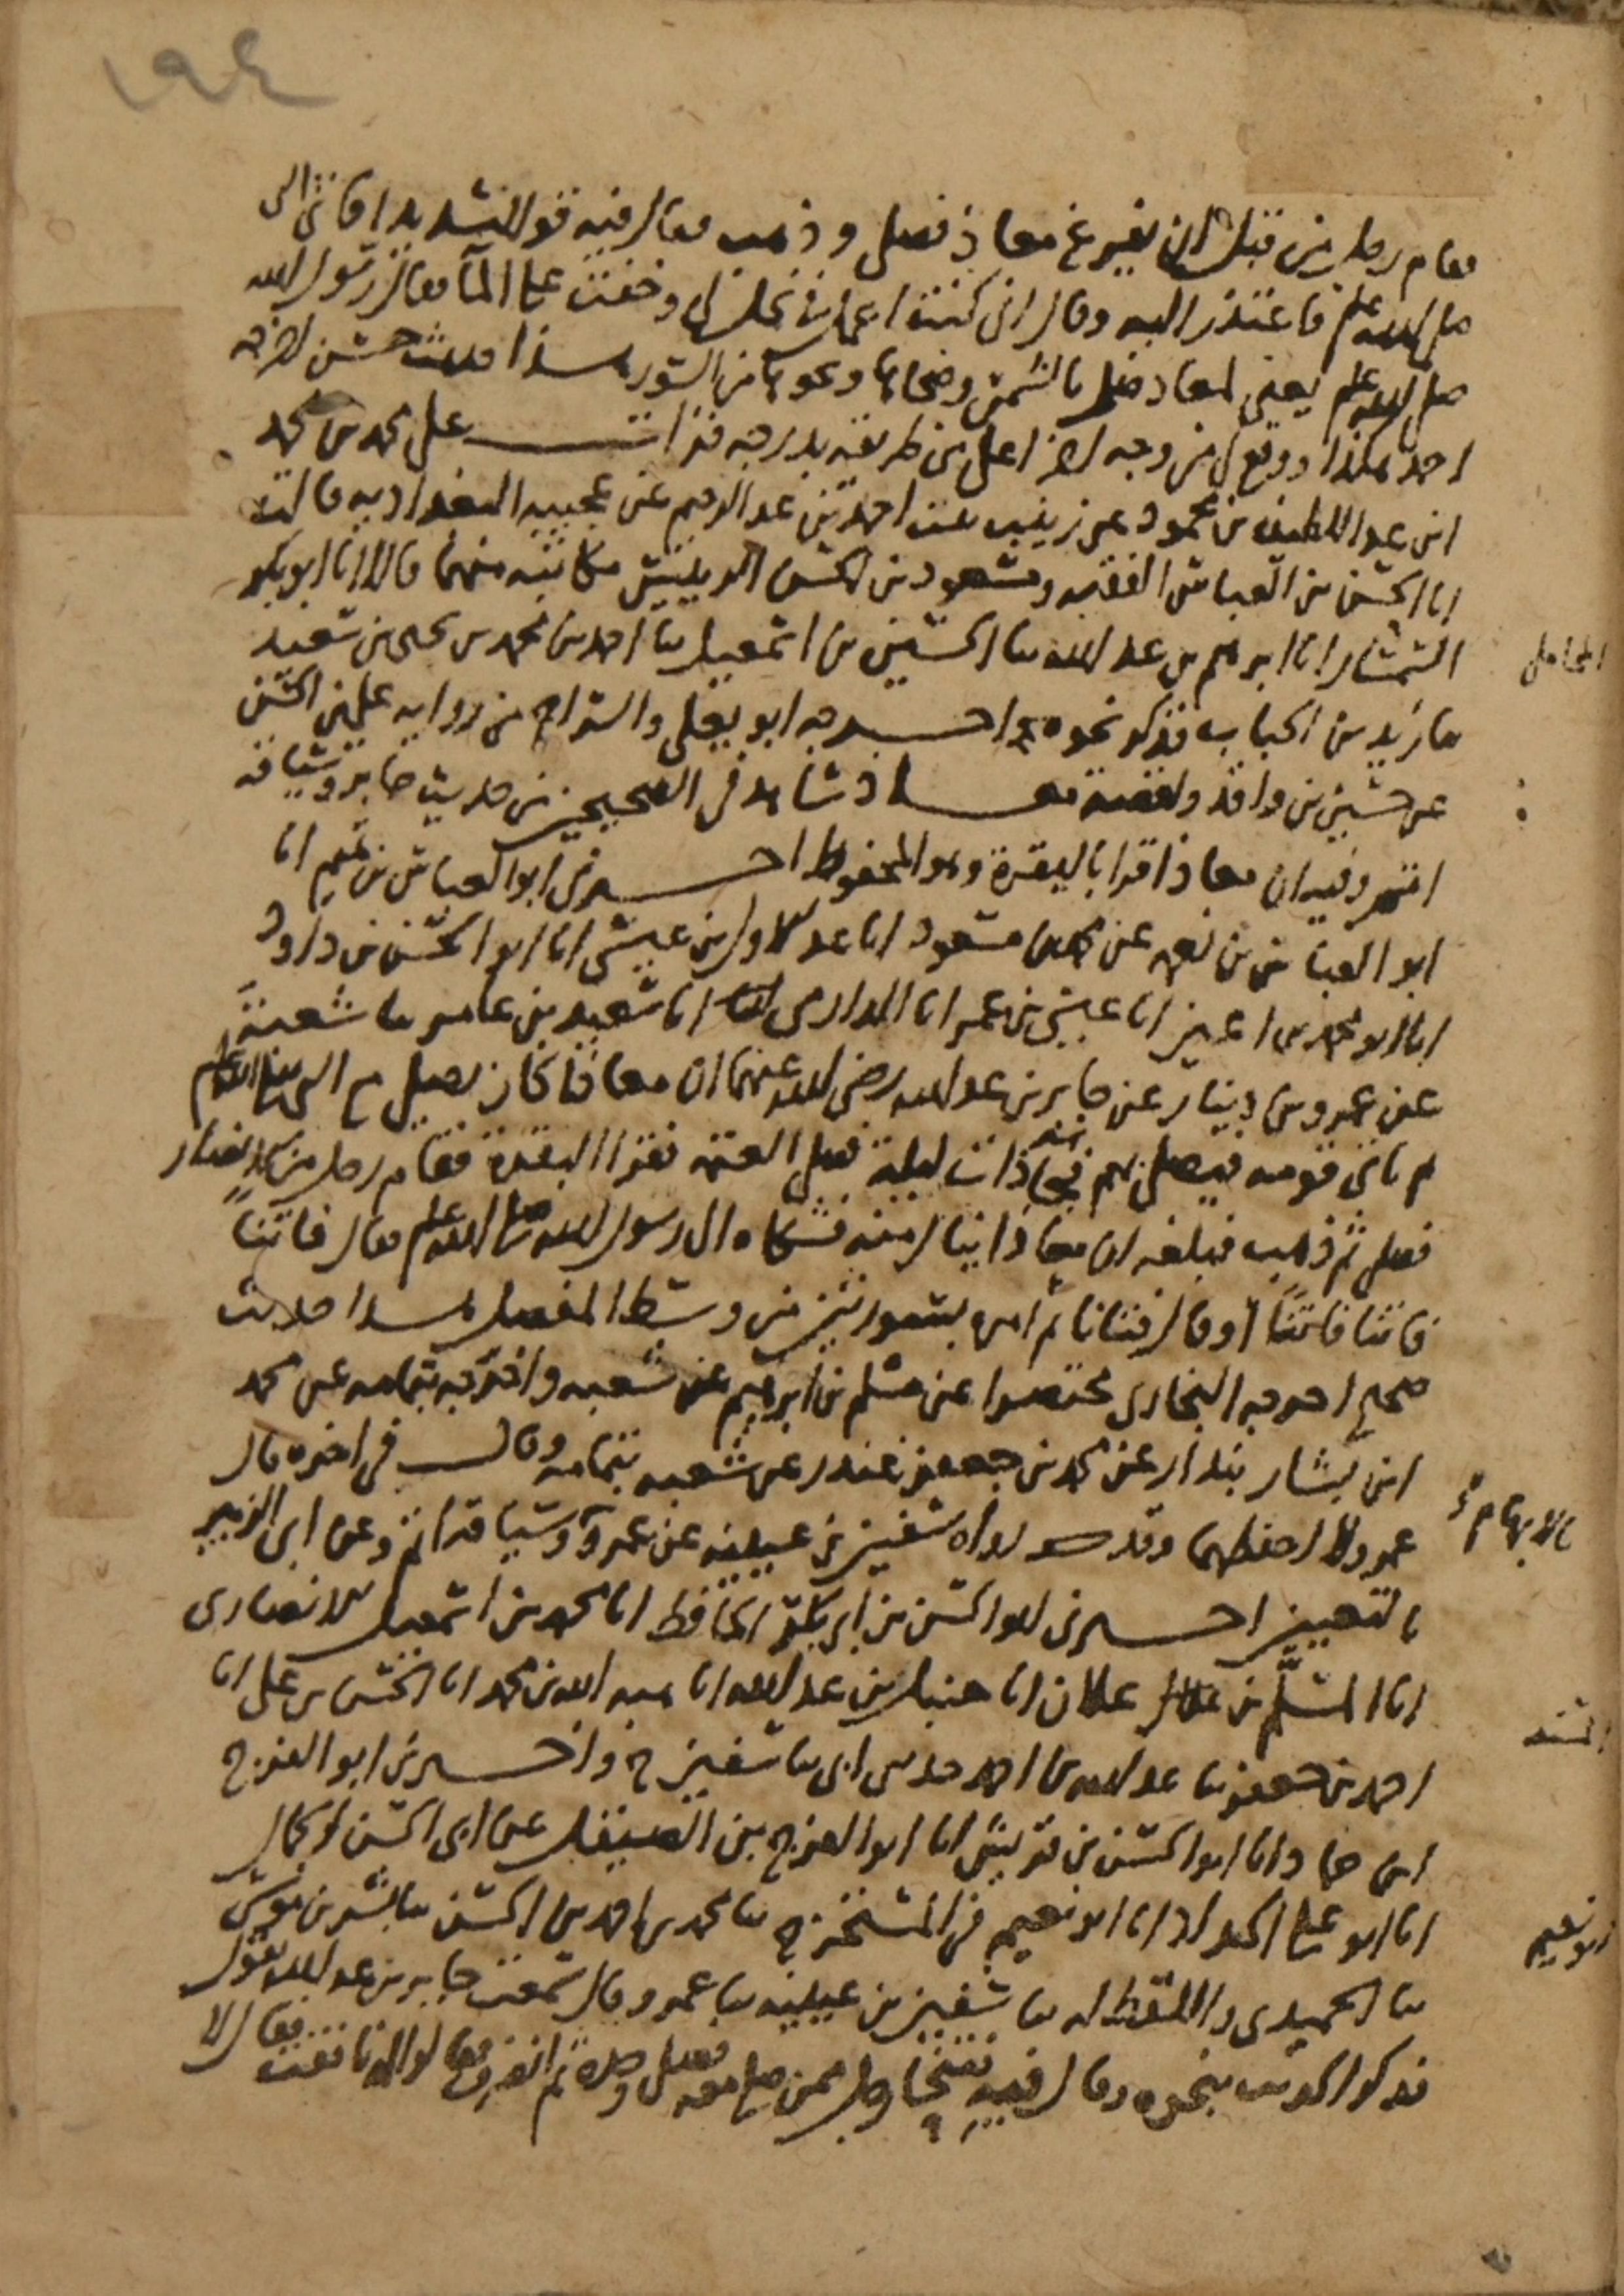 ١٩٤
فقام رجل من قبل ان يفرغ معاذ فصلى وذهب فقال فيه قولا شديدا فاتى الى
صلى الله عليه وسلم فاعتذر اليه وقال انى كنت اعمل فى نخل لى وخفت على الماء فقال رسول الله
صلى الله عليه وسلم يعنى لمعاذ صل بالشمس وضحاها ونحوها من السور هذا حديث حسن اخرجه
احمد هكذا ووقع لى من وجه اخر اعلى من طريقه بدرجة قرات على محمد بن محمد
ابن عبد اللطيف بن محمود عن زينب بنت احمد بن عبد الرحيم عن عجيبة البغدادية قالت
انا الحسن بن العباس الفقيه ومسعود بن الحسن مكاتبة منهما قالا انا ابو بكر
السمسار انا ابرهيم بن عبد الله نا الحسين بن اسمعيل نا احمد بن محمد بن يحيى بن سعيد
المحاملى
نا زيد بن الحباب فذكر نحوه واخرجه ابو يعلى والسراج من رواية على بن الحسن
عن حسين بن واقد ولقصة معاذ شاهد فى الصحيحين من حديث جابر وسياقه
اتم وفيه ان معاذا قرا بالبقرة وهو المحفوظ اخبرنى ابو العباس بن تميم انا
ابو العباس بن نعمة عن محمد بن مسعود انا عبد الاول بن عيسى انا ابو الحسن بن داود
انا ابو محمد بن اعين انا عيسى بن عمر انا الدارمى انا سعيد بن عامر نا شعبة
عن عمرو بن دينار عن جابر بن عبد الله رضى الله عنهما ان معاذا كان يصلى مع النبى صلى الله عليه وسلم
ثم ياتى قومه فيصلى بهم فجاء ذات ليلة فصلى العتمة فقرا البقرة فقام رجل من الانصار
فصلى ثم ذهب فبلغه ان معاذا ينال منه فشكاه الى رسول الله صلى الله عليه وسلم فقال فاتنا
فاتنا فاتنا او قال فتانا ثم امره بسورتين من وسط المفصل هذا حديث
صحيح اخرجه البخارى مختصرا عن مسلم بن ابرهيم عن شعبة واخرجه بتمامه عن محمد
ابن بشار بندار عن محمد بن جعفر غندر عن شعبة بتمامه وقال فى اخره قال
عمرو لا احفظهما وقد رواه سفين بن عيينة عن عمرو وسياقه اتم وعن ابى الزبير
بالابهام
بالتعيين اخبرنى ابو الحسن بن ابى بكر الحافظ انا محمد بن اسمعيل الانصارى
انا المسلم بن علان انا حنبل بن عبد الله انا هبة الله بن محمد انا الحسن بن على انا
المسند
احمد بن جعفر نا عبد الله بن احمد حدثنى ابى نا سفين ح واخبرنى ابو الفرج
ابن حماد انا ابو الحسن بن قريش انا ابو الفرج بن الصيقل عن ابى الحسن الجمال
انا ابو على الحداد انا ابو نعيم فى المستخرج نا محمد بن احمد بن الحسن نا بشر بن موسى
ابو نعيم
نا الحميدى واللفظ له نا سفين بن عيينة نا عمرو قال سمعت جابر بن عبد الله يقول
فذكر الحديث بنحوه وقال فيه فتنحى رجل ممن صلى معه فصلى وحده ثم انصرف فقالوا له نافقت فقال لا